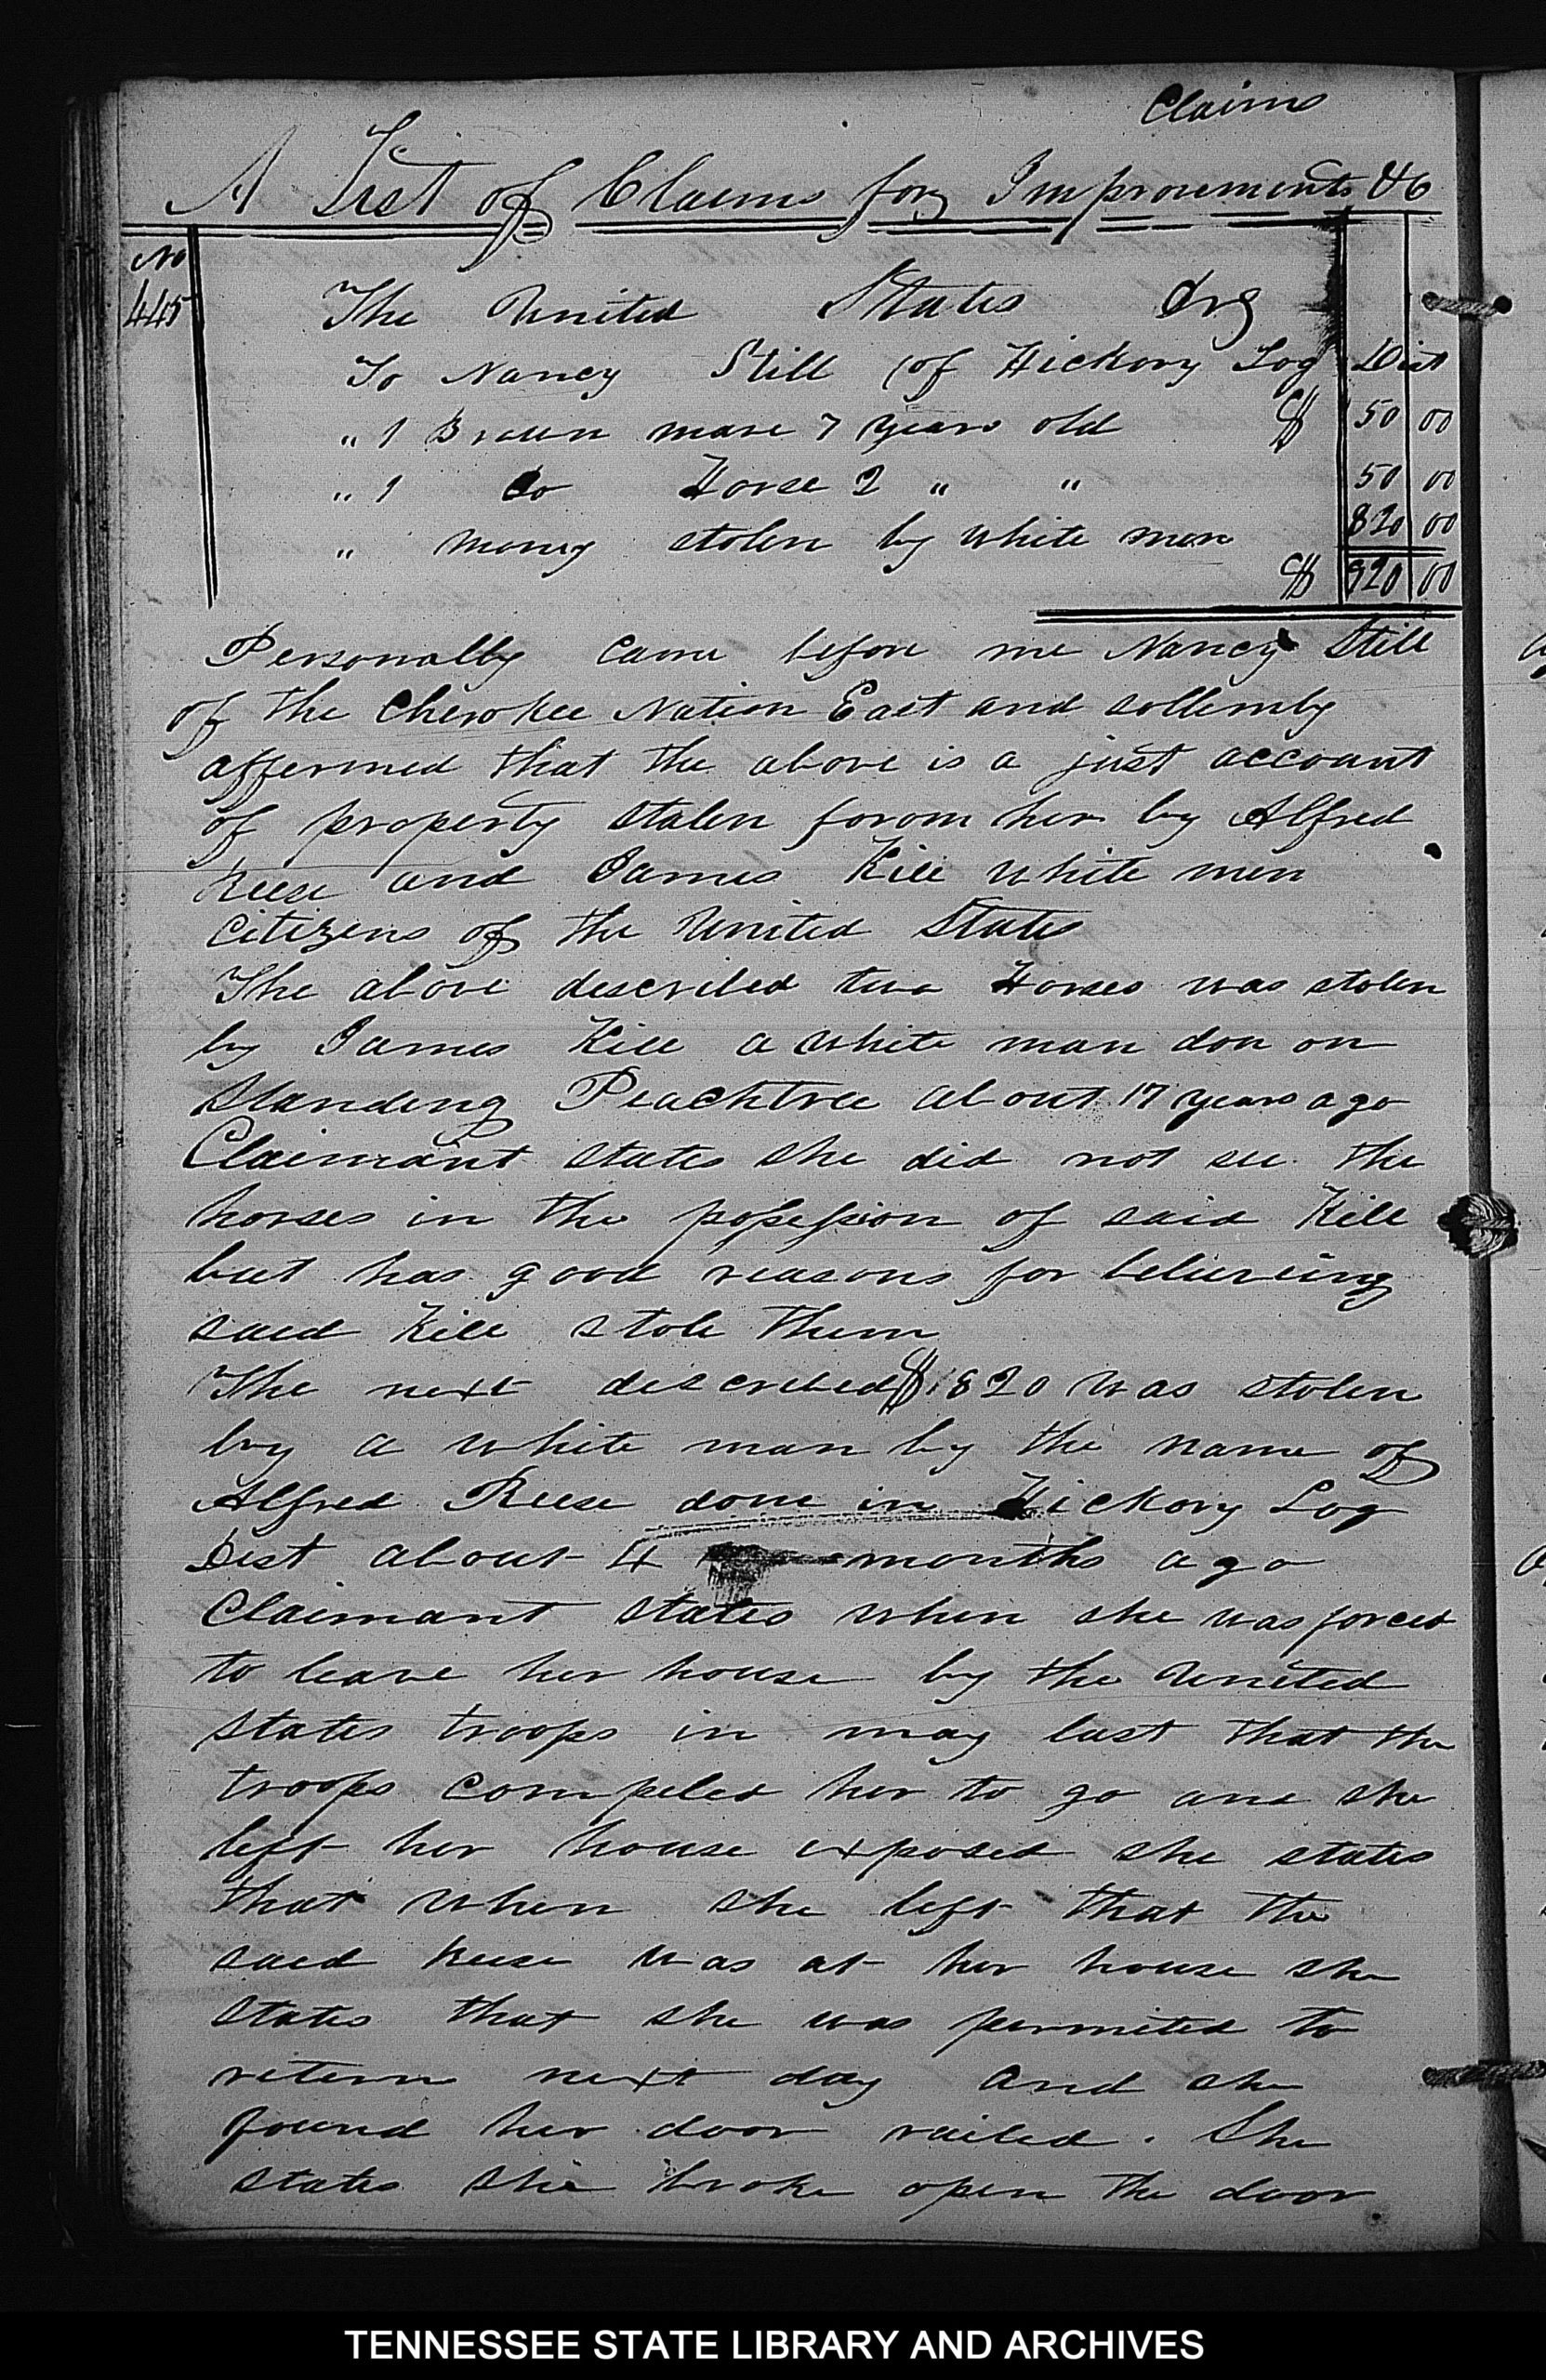 Claims
A List of Claims for Improvements &c
No
445
The United States Drs
To Nancy Still (of Hickory Log Dist
" 1 Brown mare 7 years old $ 50 00
" 1 do Horse 2 " " 50 00
" money stolen by white men 820 00
$ 920 00
Personally came before me Nancy Still
of the Cherokee Nation East and sollemly
affermed that the above is a just account
of property stolen forom her by Alfred
Reese and James Kell white men
citizens of the United States
The above described two Horses was stolen
by James Kell a white man don on
Standing Peachtree about 17 years ago
Claimant states she did not see the
horses in the possession of said Kell
but has good reasons for believeing
said Kell stole them
The next described $ 820 was stolen
by a white man by the name of
Alfred Reese done in Hickory Log
Dist about 4 months ago
Claimant states when she was forced
to leave her house by the United
states troops in may last that the
troops compeled her to go and she
left her house exposed she states
that when she left that the
said Reese was at her house she
states that she was permited to
return next day and she
found her door nailed. She
states she broke open the door
TENNESSEE STATE LIBRARY AND ARCHIVES